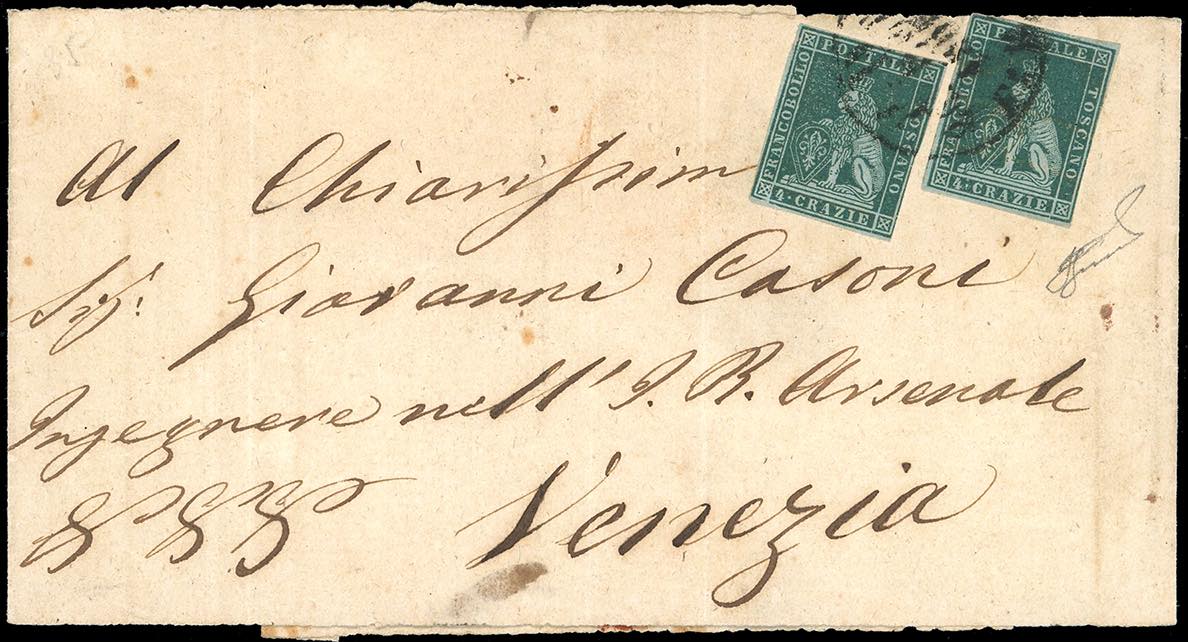 Al Chiarissim
Sig.
Giovanni Casoni
Ingegnere nell' I. R. Arsenale
Venezia
FRANCOBOLLO
POSTALE
TOSCANO
4·CRAZIE
FRANCOBOLLO
POSTALE
TOSCANO
4·CRAZIE